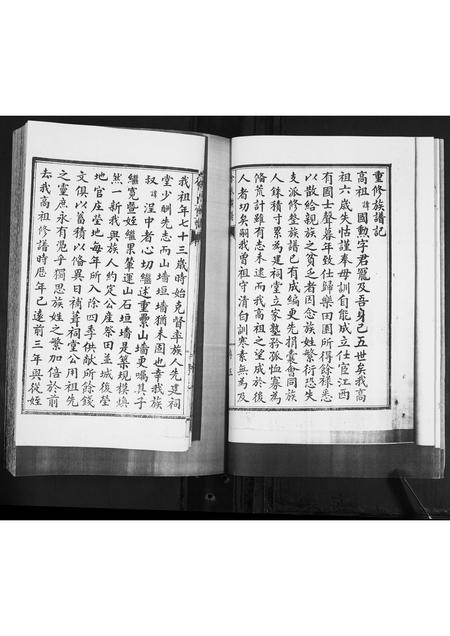 重修族譜記
高祖諱國勲字君寵及吾身已五世矣我高
祖六歲失怙謹奉母訓自能成立仕宦江西
有國士聲暮年致仕歸樂田園所得餘祿悉
以散給親族之貧乏者因念族姓繁衍恐失
支派修整族譜已有成編更先捐囊會同族
人銖積寸累為建祠堂立家塾矜孤恤寡為
備荒計雖有志未逮而我高祖之望成於後
人者切矣嗣我曾祖守清白訓寒素無為及
我祖年七十三歲時始克督率族人先建祠
堂少酬先志而山墻垣墻猶未固也幸我族
叔諱涅中者心切繼述重禀山墻更囑其子
繼寬暨姪繼果輦運山石垣墻是築規模煥
然一新我與族人約定公產祭田並城後塋
地官庄塋地每年所入除四季供献所餘錢
文俱以蓄積以備異日補葺祠堂公用祖先
之靈庶永有凭乎獨思族姓之繁加倍於前
去我高祖修譜時歴年已遠前三年與從姪